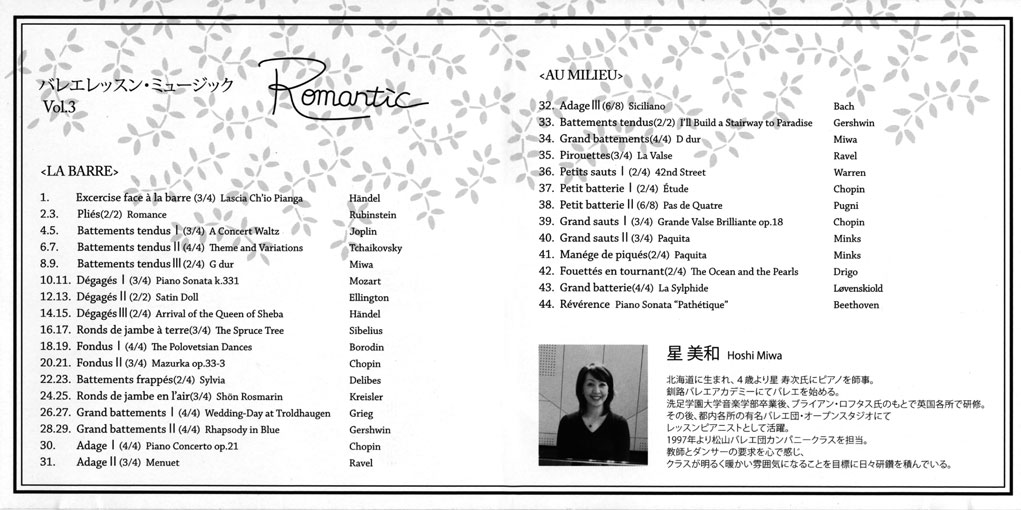 バレエレッスン・ミュージック
Vol.3
Romantic
<LA BARRE>
1. Excercise face à la barre (3/4) Lascia Ch'io Pianga Händel
2.3. Pliés(2/2) Romance Rubinstein
4.5. Battements tendus Ⅰ (3/4) A Concert Waltz Joplin
6.7. Battements tendus Ⅱ (4/4) Theme and Variations Tchaikovsky
8.9. Battements tendus Ⅲ (2/4) G dur Miwa
10.11. Dégagés Ⅰ (3/4) Piano Sonata k.331 Mozart
12.13. Dégagés Ⅱ (2/2) Satin Doll Ellington
14.15. Dégagés Ⅲ (2/4) Arrival of the Queen of Sheba Händel
16.17. Ronds de jambe à terre(3/4) The Spruce Tree Sibelius
18.19. Fondus Ⅰ (4/4) The Polovetsian Dances Borodin
20.21. Fondus Ⅱ (3/4) Mazurka op.33-3 Chopin
22.23. Battements frappés(2/4) Sylvia Delibes
24.25. Ronds de jambe en l'air(3/4) Shön Rosmarin Kreisler
26.27. Grand battements Ⅰ (4/4) Wedding-Day at Troldhaugen Grieg
28.29. Grand battements Ⅱ (4/4) Rhapsody in Blue Gershwin
30. Adage Ⅰ (4/4) Piano Concerto op.21 Chopin
31. Adage Ⅱ (3/4) Menuet Ravel
<AU MILIEU>
32. Adage Ⅲ (6/8) Siciliano Bach
33. Battements tendus(2/2) I'll Build a Stairway to Paradise Gershwin
34. Grand battements(4/4) D dur Miwa
35. Pirouettes(3/4) La Valse Ravel
36. Petits sauts Ⅰ (2/4) 42nd Street Warren
37. Petit batterie Ⅰ (2/4) Étude Chopin
38. Petit batterie Ⅱ (6/8) Pas de Quatre Pugni
39. Grand sauts Ⅰ (3/4) Grande Valse Brilliante op.18 Chopin
40. Grand sauts Ⅱ (3/4) Paquita Minks
41. Manége de piqués(2/4) Paquita Minks
42. Fouettés en tournant(2/4) The Ocean and the Pearls Drigo
43. Grand batterie(4/4) La Sylphide Løvenskiold
44. Révérence Piano Sonata "Pathétique" Beethoven
星 美和 Hoshi Miwa
北海道に生まれ、4歳より星 寿次氏にピアノを師事。
釧路バレエアカデミーにてバレエを始める。
洗足学園大学音楽学部卒業後、ブライアン・ロフタス氏のもとで英国各所で研修。
その後、都内各所の有名バレエ団・オープンスタジオにて
レッスンピアニストとして活躍。
1997年より松山バレエ団カンパニークラスを担当。
教師とダンサーの要求を心で感じ、
クラスが明るく暖かい雰囲気になることを目標に日々研鑽を積んでいる。